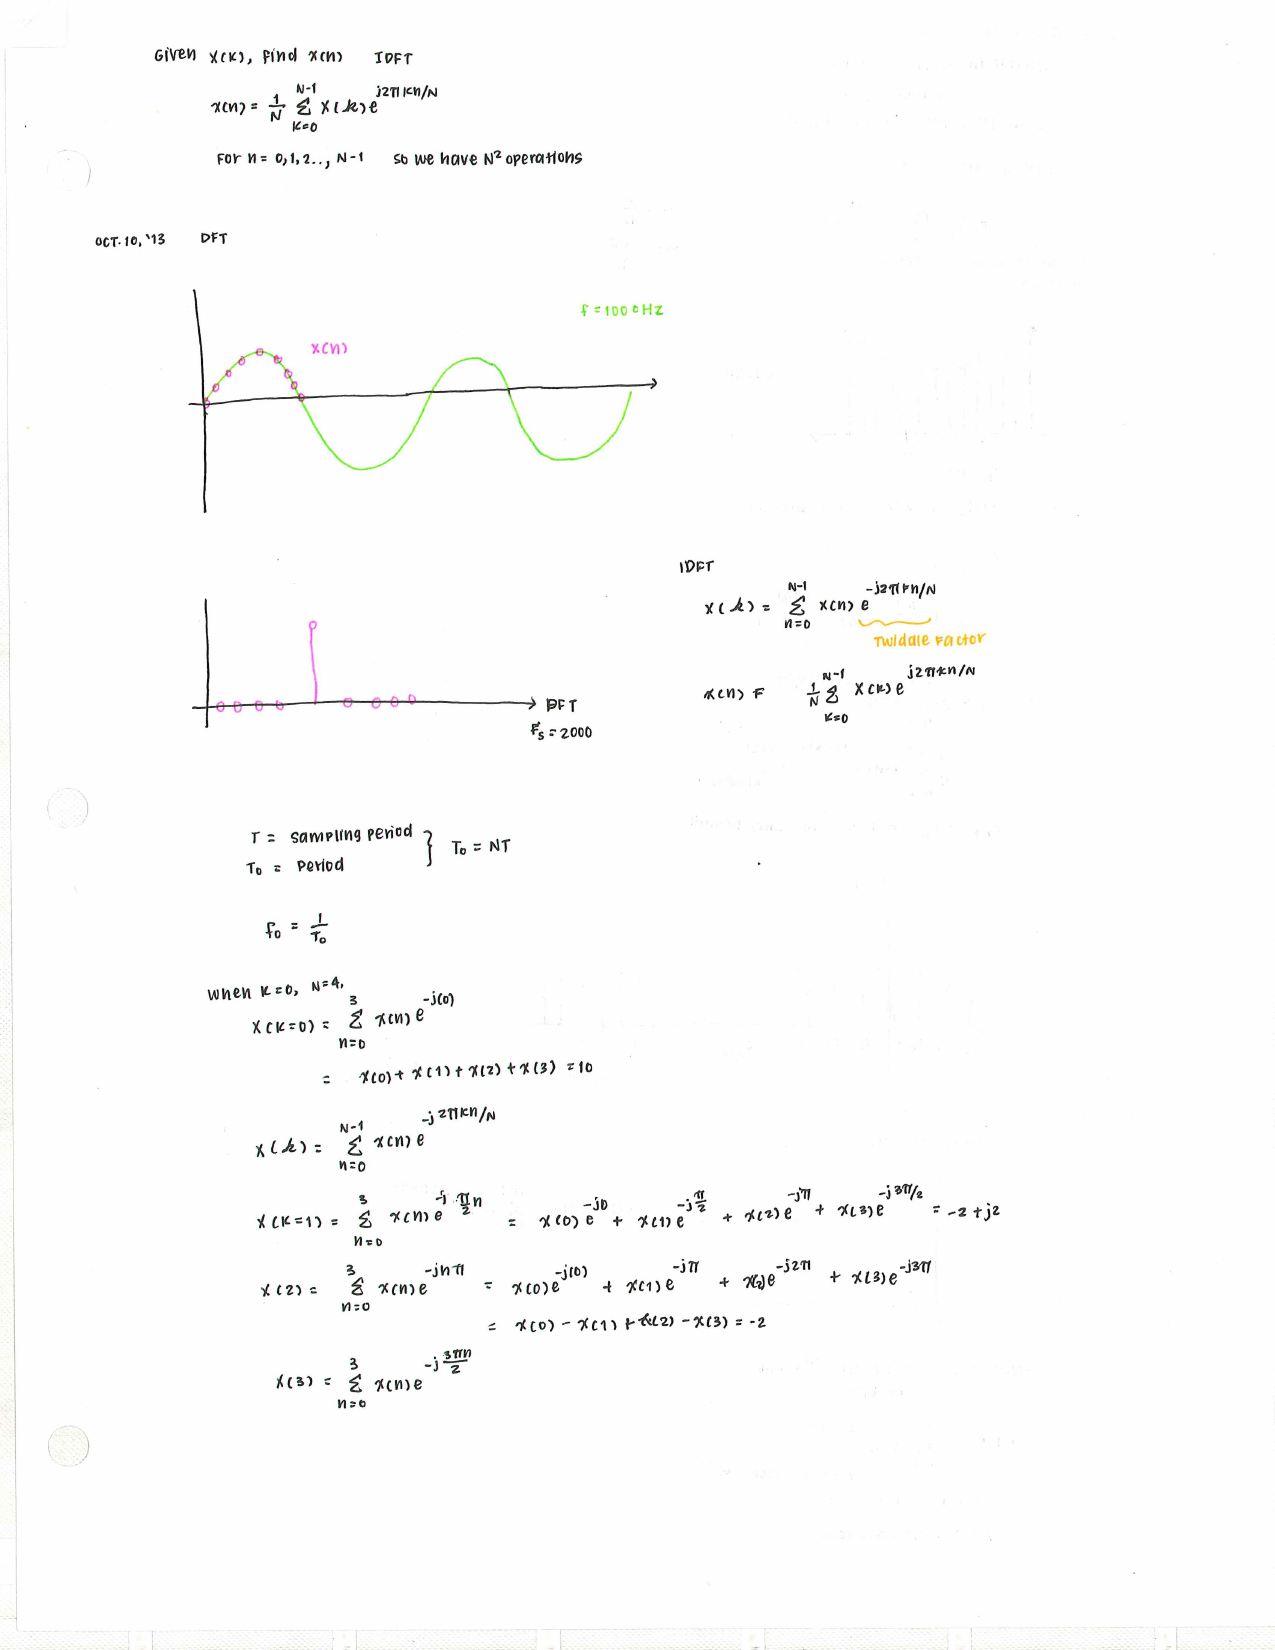 Given X(K), Find x(n) IDFT
x(n) = 1/N N-1 Σ K=0 X(k)e^j2πkn/N
For n = 0,1,2.., N-1 so we have N² operations
OCT. 10, '13 DFT
f = 1000Hz
x(n)
IDFT
X(k) = N-1 Σ n=0 x(n) e^-j2πkn/N
Twiddle Factor
x(n) = 1/N N-1 Σ K=0 X(k) e^j2πkn/N
DFT
Fs = 2000
T = sampling period
T₀ = Period
} T₀ = NT
f₀ = 1/T₀
When K=0, N=4,
X(K=0) = 3 Σ n=0 x(n) e^-j(0)
= x(0) + x(1) + x(2) + x(3) = 10
X(k) = N-1 Σ n=0 x(n) e^-j2πkn/N
X(K=1) = 3 Σ n=0 x(n) e^-j π/2 n = x(0) e^-j0 + x(1) e^-jπ/2 + x(2) e^-jπ + x(3) e^-j3π/2 = -2 + j2
X(2) = 3 Σ n=0 x(n) e^-jnπ = x(0)e^-j(0) + x(1) e^-jπ + x(2)e^-j2π + x(3)e^-j3π
= x(0) - x(1) + x(2) - x(3) = -2
X(3) = 3 Σ n=0 x(n)e^-j 3πn/2